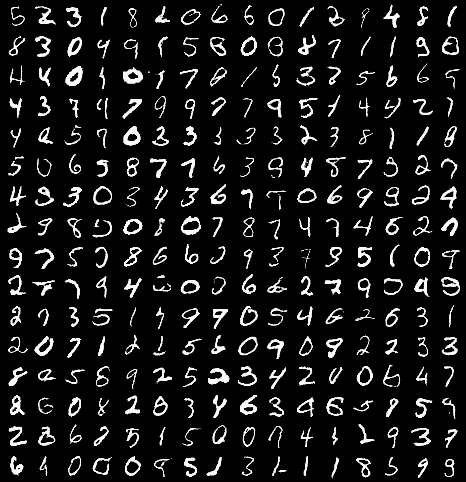 5 2 3 1 8 2 0 6 6 0 1 2 9 4 8 1
8 3 0 4 9 1 5 8 0 8 8 7 1 1 9 8
4 4 0 1 0 1 7 8 1 6 3 7 5 6 6 9
4 3 7 9 7 9 9 7 7 9 5 1 4 4 2 7
4 2 5 7 0 3 3 3 3 3 2 3 8 1 1 8
5 0 6 5 8 7 7 6 3 9 4 8 7 9 2 7
4 9 3 0 3 4 3 6 7 7 0 6 9 9 2 4
2 9 8 0 0 8 0 7 8 7 4 7 4 6 2 7
9 7 5 0 8 6 6 0 9 3 7 9 5 1 0 9
2 7 7 9 4 0 0 6 6 2 7 9 0 4 9
2 7 3 5 1 1 9 9 0 5 4 6 2 6 3 1
2 0 7 1 2 1 5 6 0 9 0 9 2 2 3 3
8 2 5 8 9 2 5 2 3 4 2 0 0 6 4 7
8 6 0 8 2 8 3 4 6 3 9 6 5 8 5 9
2 8 6 2 5 1 5 0 0 7 4 1 2 9 3 7
6 9 0 0 0 9 5 1 3 1 1 1 8 5 9 9